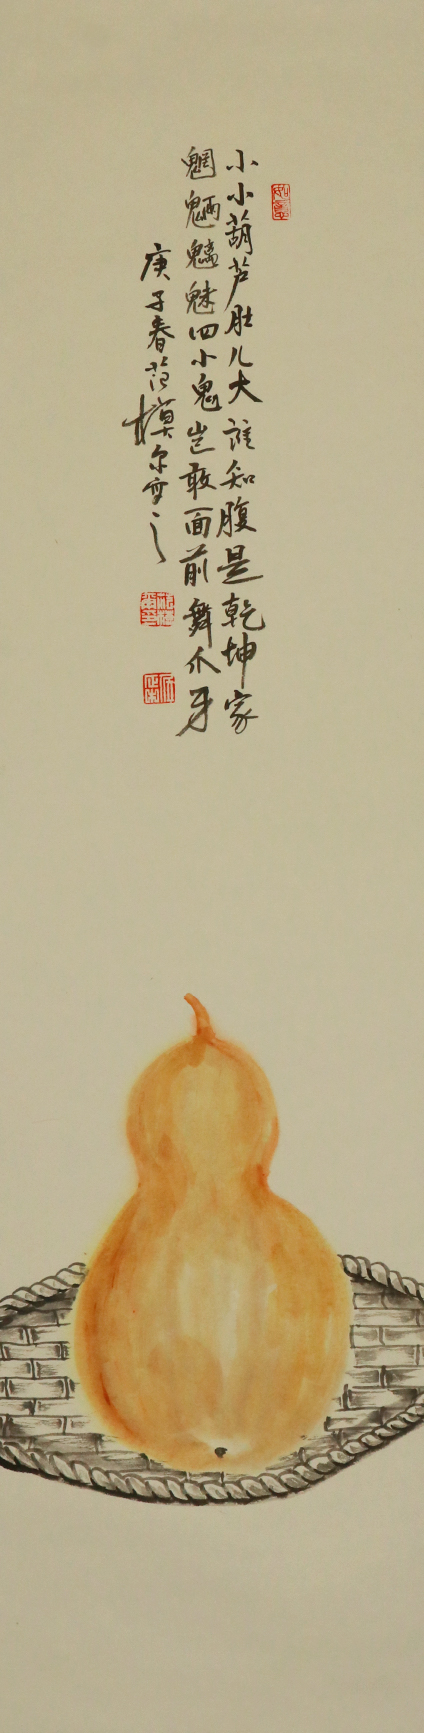 小小葫芦肚儿大谁知腹是乾坤家
魍魉魑魅四小鬼岂敢面前舞爪牙
庚子春范模尔写之